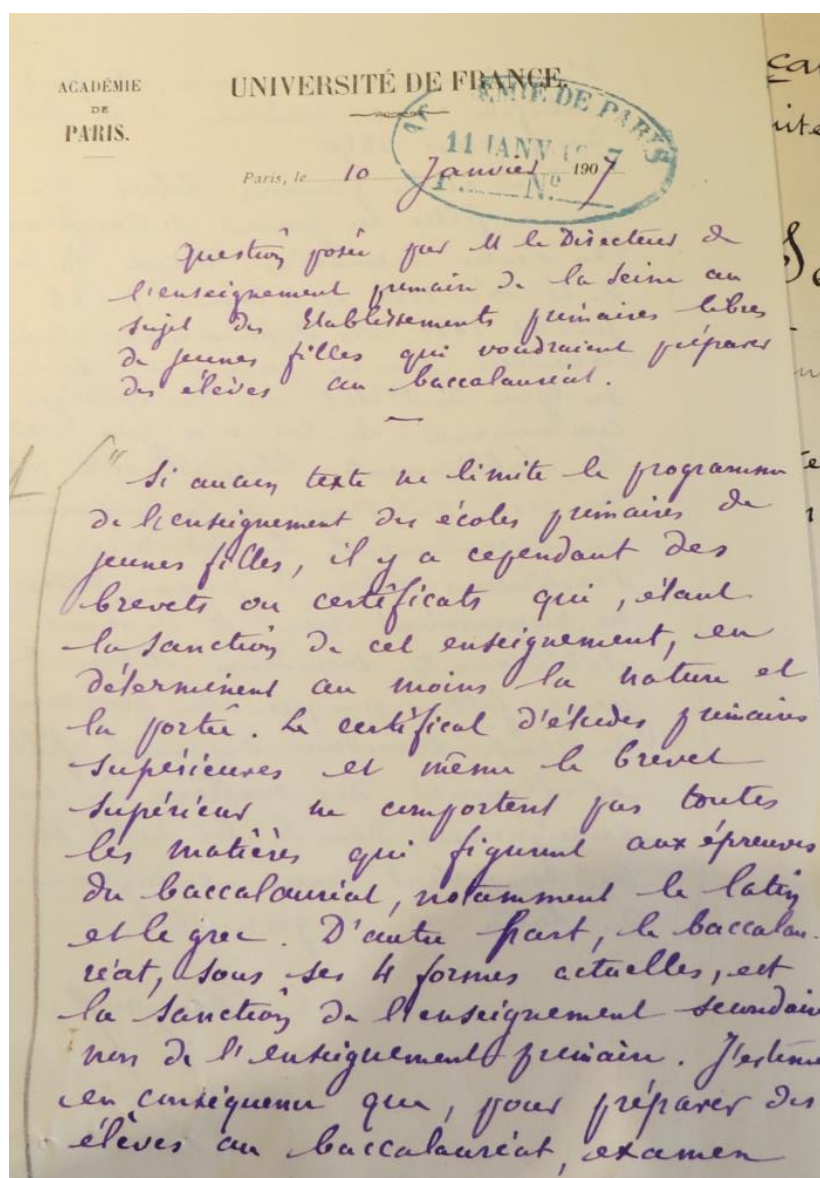 ACADÉMIE
DE
PARIS.
UNIVERSITÉ DE FRANCE.
ACADÉMIE DE PARIS
11 JANV 1907
F. N°
Paris, le 10 Janvier 1907
Question posée par M le Directeur de
l'enseignement primaire de la Seine au
sujet des Etablissements primaires libres
de jeunes filles qui voudraient préparer
des élèves au baccalauréat.
"Si aucun texte ne limite le programme
de l'enseignement des écoles primaires de
jeunes filles, il y a cependant des
brevets ou certificats qui, étant
la sanction de cet enseignement, en
déterminent au moins la nature et
la portée. Le certificat d'études primaires
supérieures et même le brevet
supérieur ne comportent pas toutes
les matières qui figurent aux épreuves
du baccalauréat, notamment le latin
et le grec. D'autre part, le baccalau-
réat, sous ses 4 formes actuelles, est
la sanction de l'enseignement secondaire
non de l'enseignement primaire. J'estime
en conséquence que, pour préparer des
élèves au baccalauréat, examen